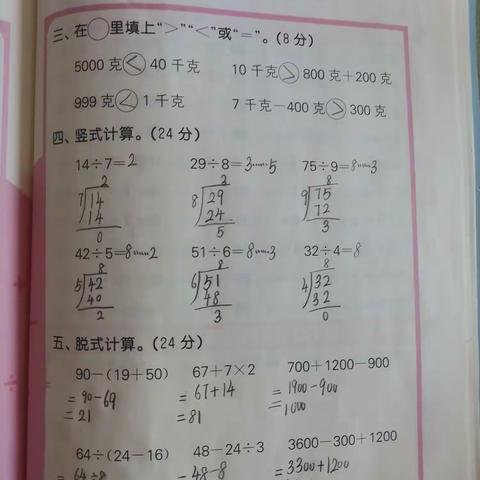 三、在○里填上“＞”“＜”或“＝”。(8分)
5000克＜40千克 10千克＞800克＋200克
999克＜1千克 7千克－400克＞300克
四、竖式计算。(24分)
14÷7=2 29÷8=3……5 75÷9=8……3
2 3 8
7 14 8 29 9 75
14 24 72
0 5 3
42÷5=8……2 51÷6=8……3 32÷4=8
8 8 8
5 42 6 51 4 32
40 48 32
2 3 0
五、脱式计算。(24分)
90－(19＋50) 67＋7×2 700＋1200－900
=90-69 =67+14 =1900-900
=21 =81 =1000
64÷(24－16) 48－24÷3 3600－300＋1200
=64÷8 =48-8 =3300+1200